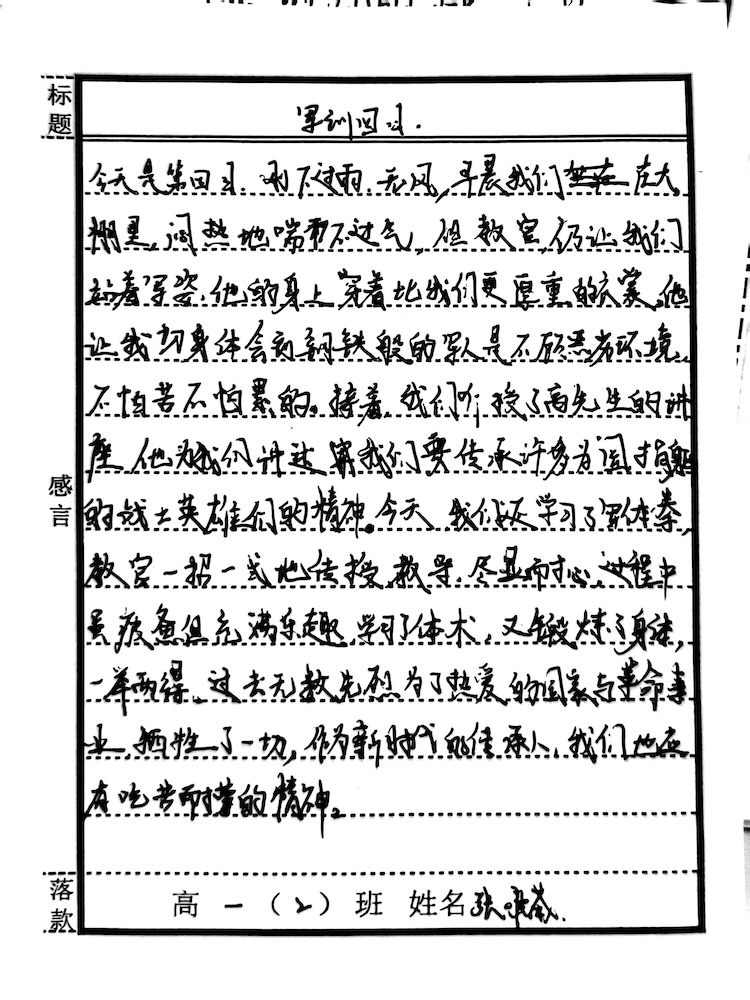 标题
军训四日.
今天是第四日.刚下过雨.无风,早晨我们在大
棚里,闷热地喘不过气,但教官仍让我们
站着军姿.他的身上穿着比我们更厚重的衣裳。他
让我切身体会到钢铁般的军人是不顾恶劣环境、
不怕苦不怕累的。接着,我们听授了高先生的讲
座,他为我们讲述了我们要传承许多为国捐躯
的战士英雄们的精神。今天,我们还学习了军体拳,
教官一招一式地传授、教导.尽显耐心,过程中
虽疲惫但充满乐趣,学习了体术,又锻炼了身体,
一举两得。过去无数先烈为了热爱的国家与革命事
业,牺牲了一切,作为新时代的传承人,我们也应
有吃苦耐劳的精神。
感言
落款
高一(2)班 姓名 张